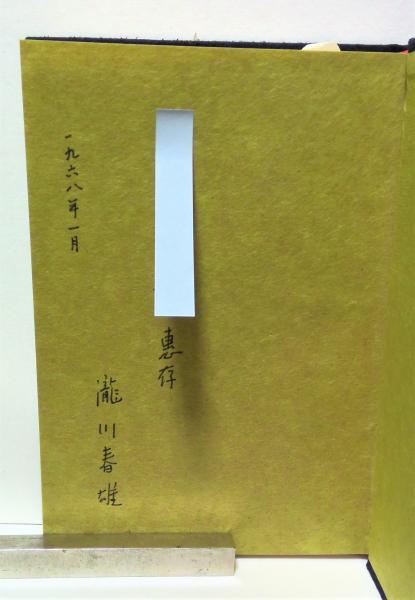 惠存
瀧川春雄
一九六八年一月